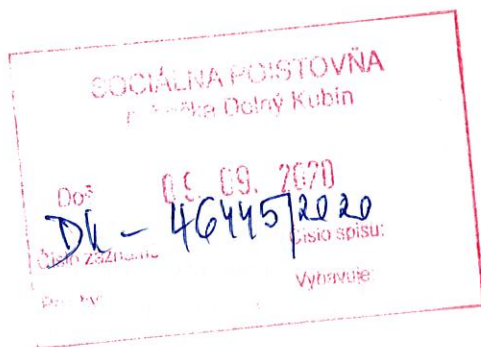 SOCIÁLNA POISTOVŇA
pobočka Dolný Kubín
Doš
09. 2020
DK - 46445/2020
Číslo záznamu
Číslo spisu:
Vybavuje: